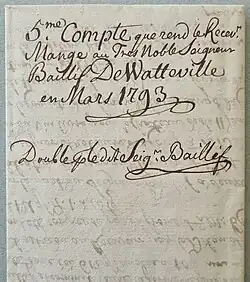 5.me Compte que rend le Recev.r
Mange au Tres Noble Seigneur
Baillif De Watteville
en Mars 1793
Double dit Seig.r Baillif